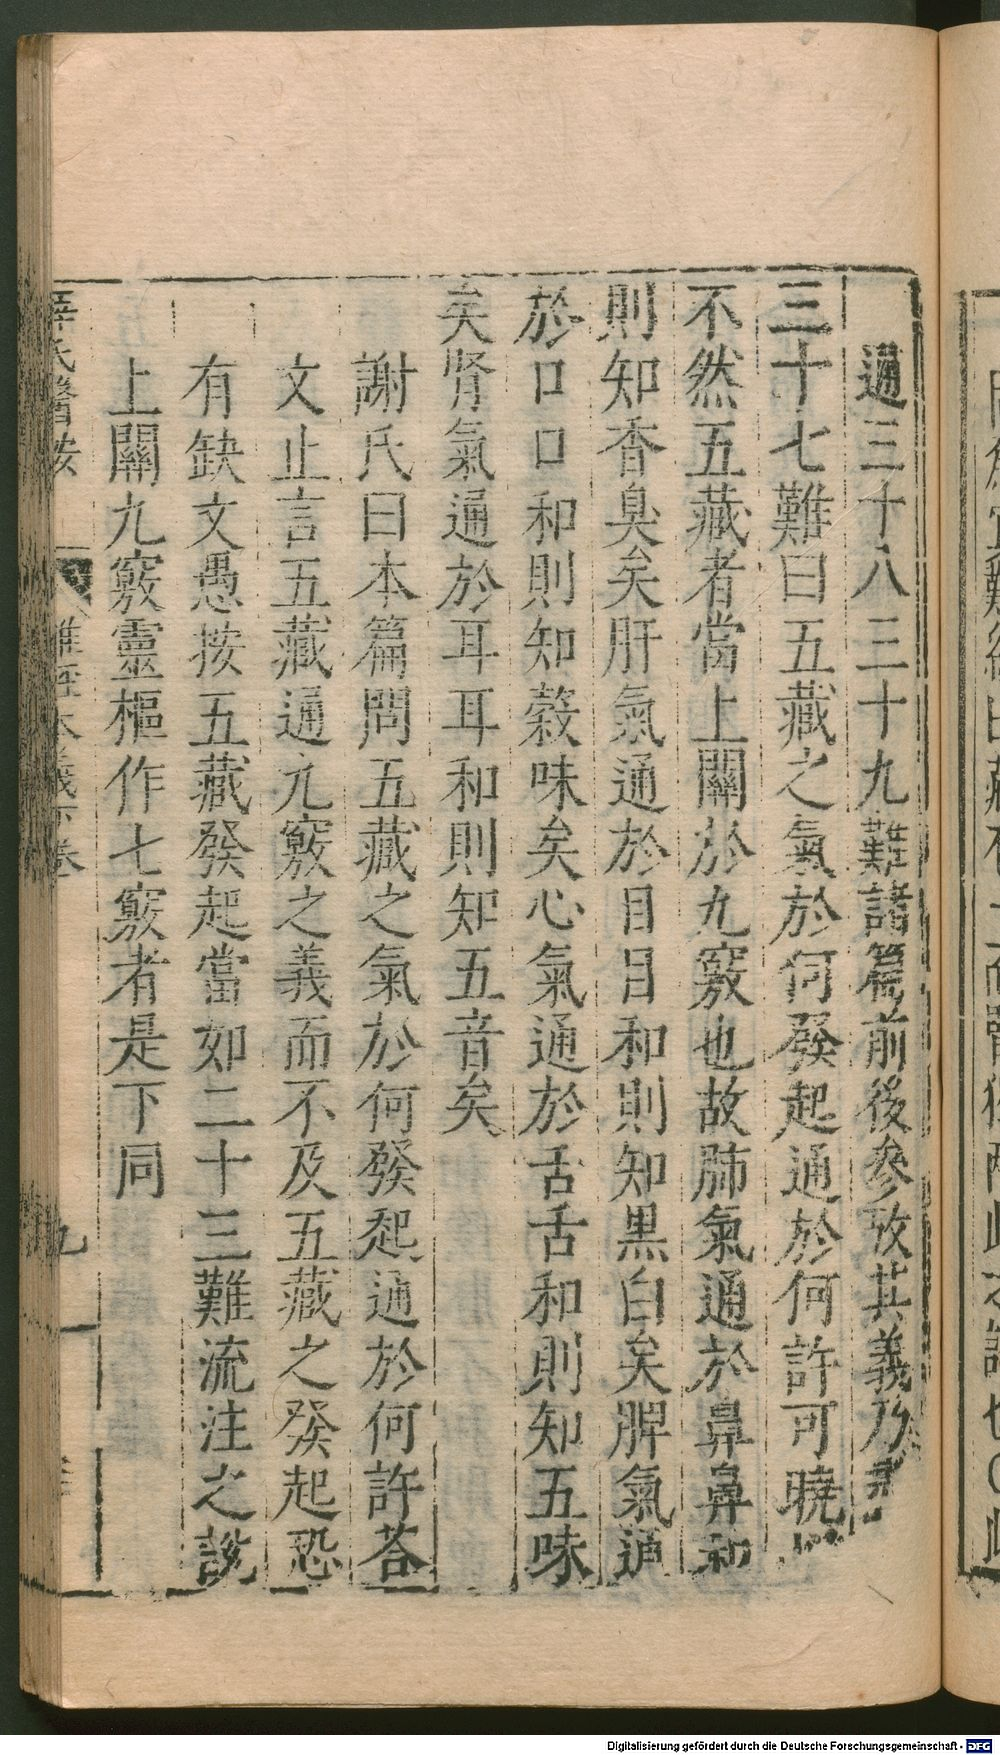 通三十八三十九難諸篇前後參攷其義乃
三十七難曰五藏之氣於何發起通於何許可曉以
不然五藏者當上關於九竅也故肺氣通於鼻鼻和
則知香臭矣肝氣通於目目和則知黒白矣脾氣通
於口口和則知穀味矣心氣通於舌舌和則知五味
矣腎氣通於耳耳和則知五音矣
謝氏曰本篇問五藏之氣於何發起通於何許荅
文止言五藏通九竅之義而不及五藏之發起恐
有缺文愚按五藏發起當如二十三難流注之說
上關九竅靈樞作七竅者是下同
薛氏醫按
難經本義下卷
九
Digitalisierung gefördert durch die Deutsche Forschungsgemeinschaft - DFG